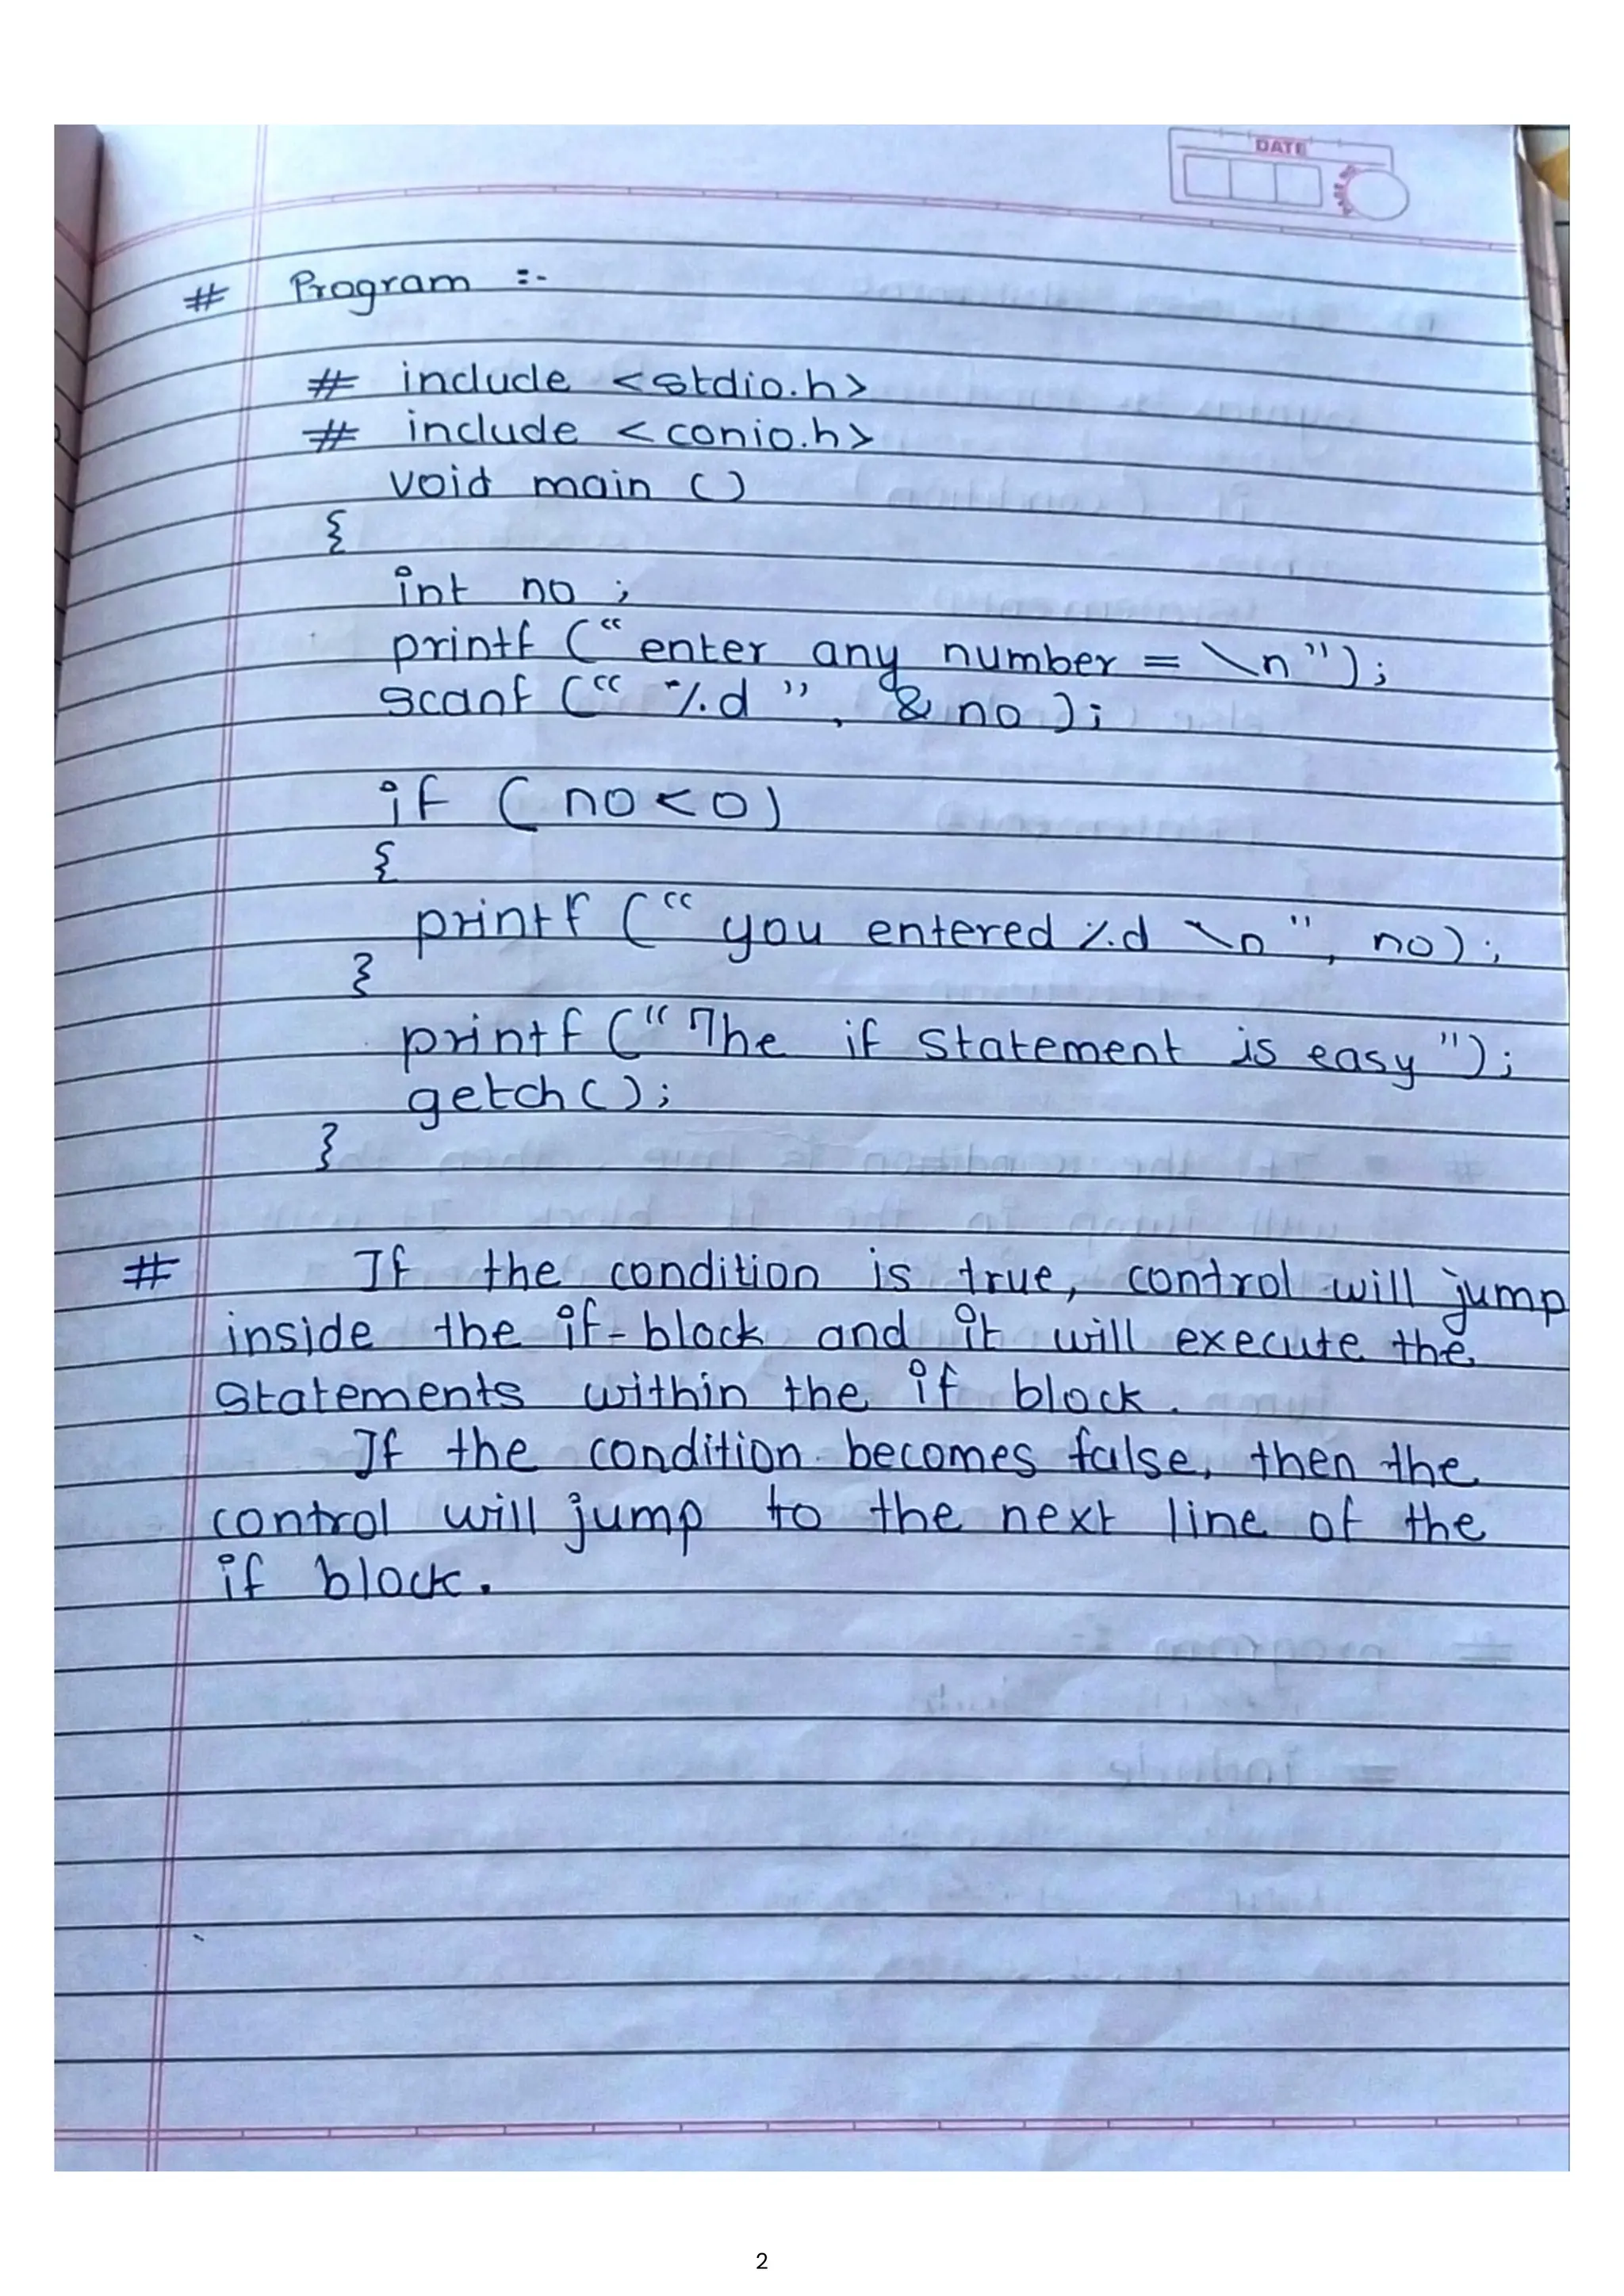 DATE
# Program :-
# include <stdio.h>
# include <conio.h>
void main ()
{
int no ;
printf (“ enter any number = \n”);
scanf (“ %d ” , & no );
if ( no < 0 )
{
printf (“ you entered %d \n ”, no) ;
}
printf (“ The if statement is easy ”);
getch ( ) ;
}
# If the condition is true, control will jump
inside the if-block and it will execute the
statements within the if block.
If the condition becomes false, then the
control will jump to the next line of the
if block.
2